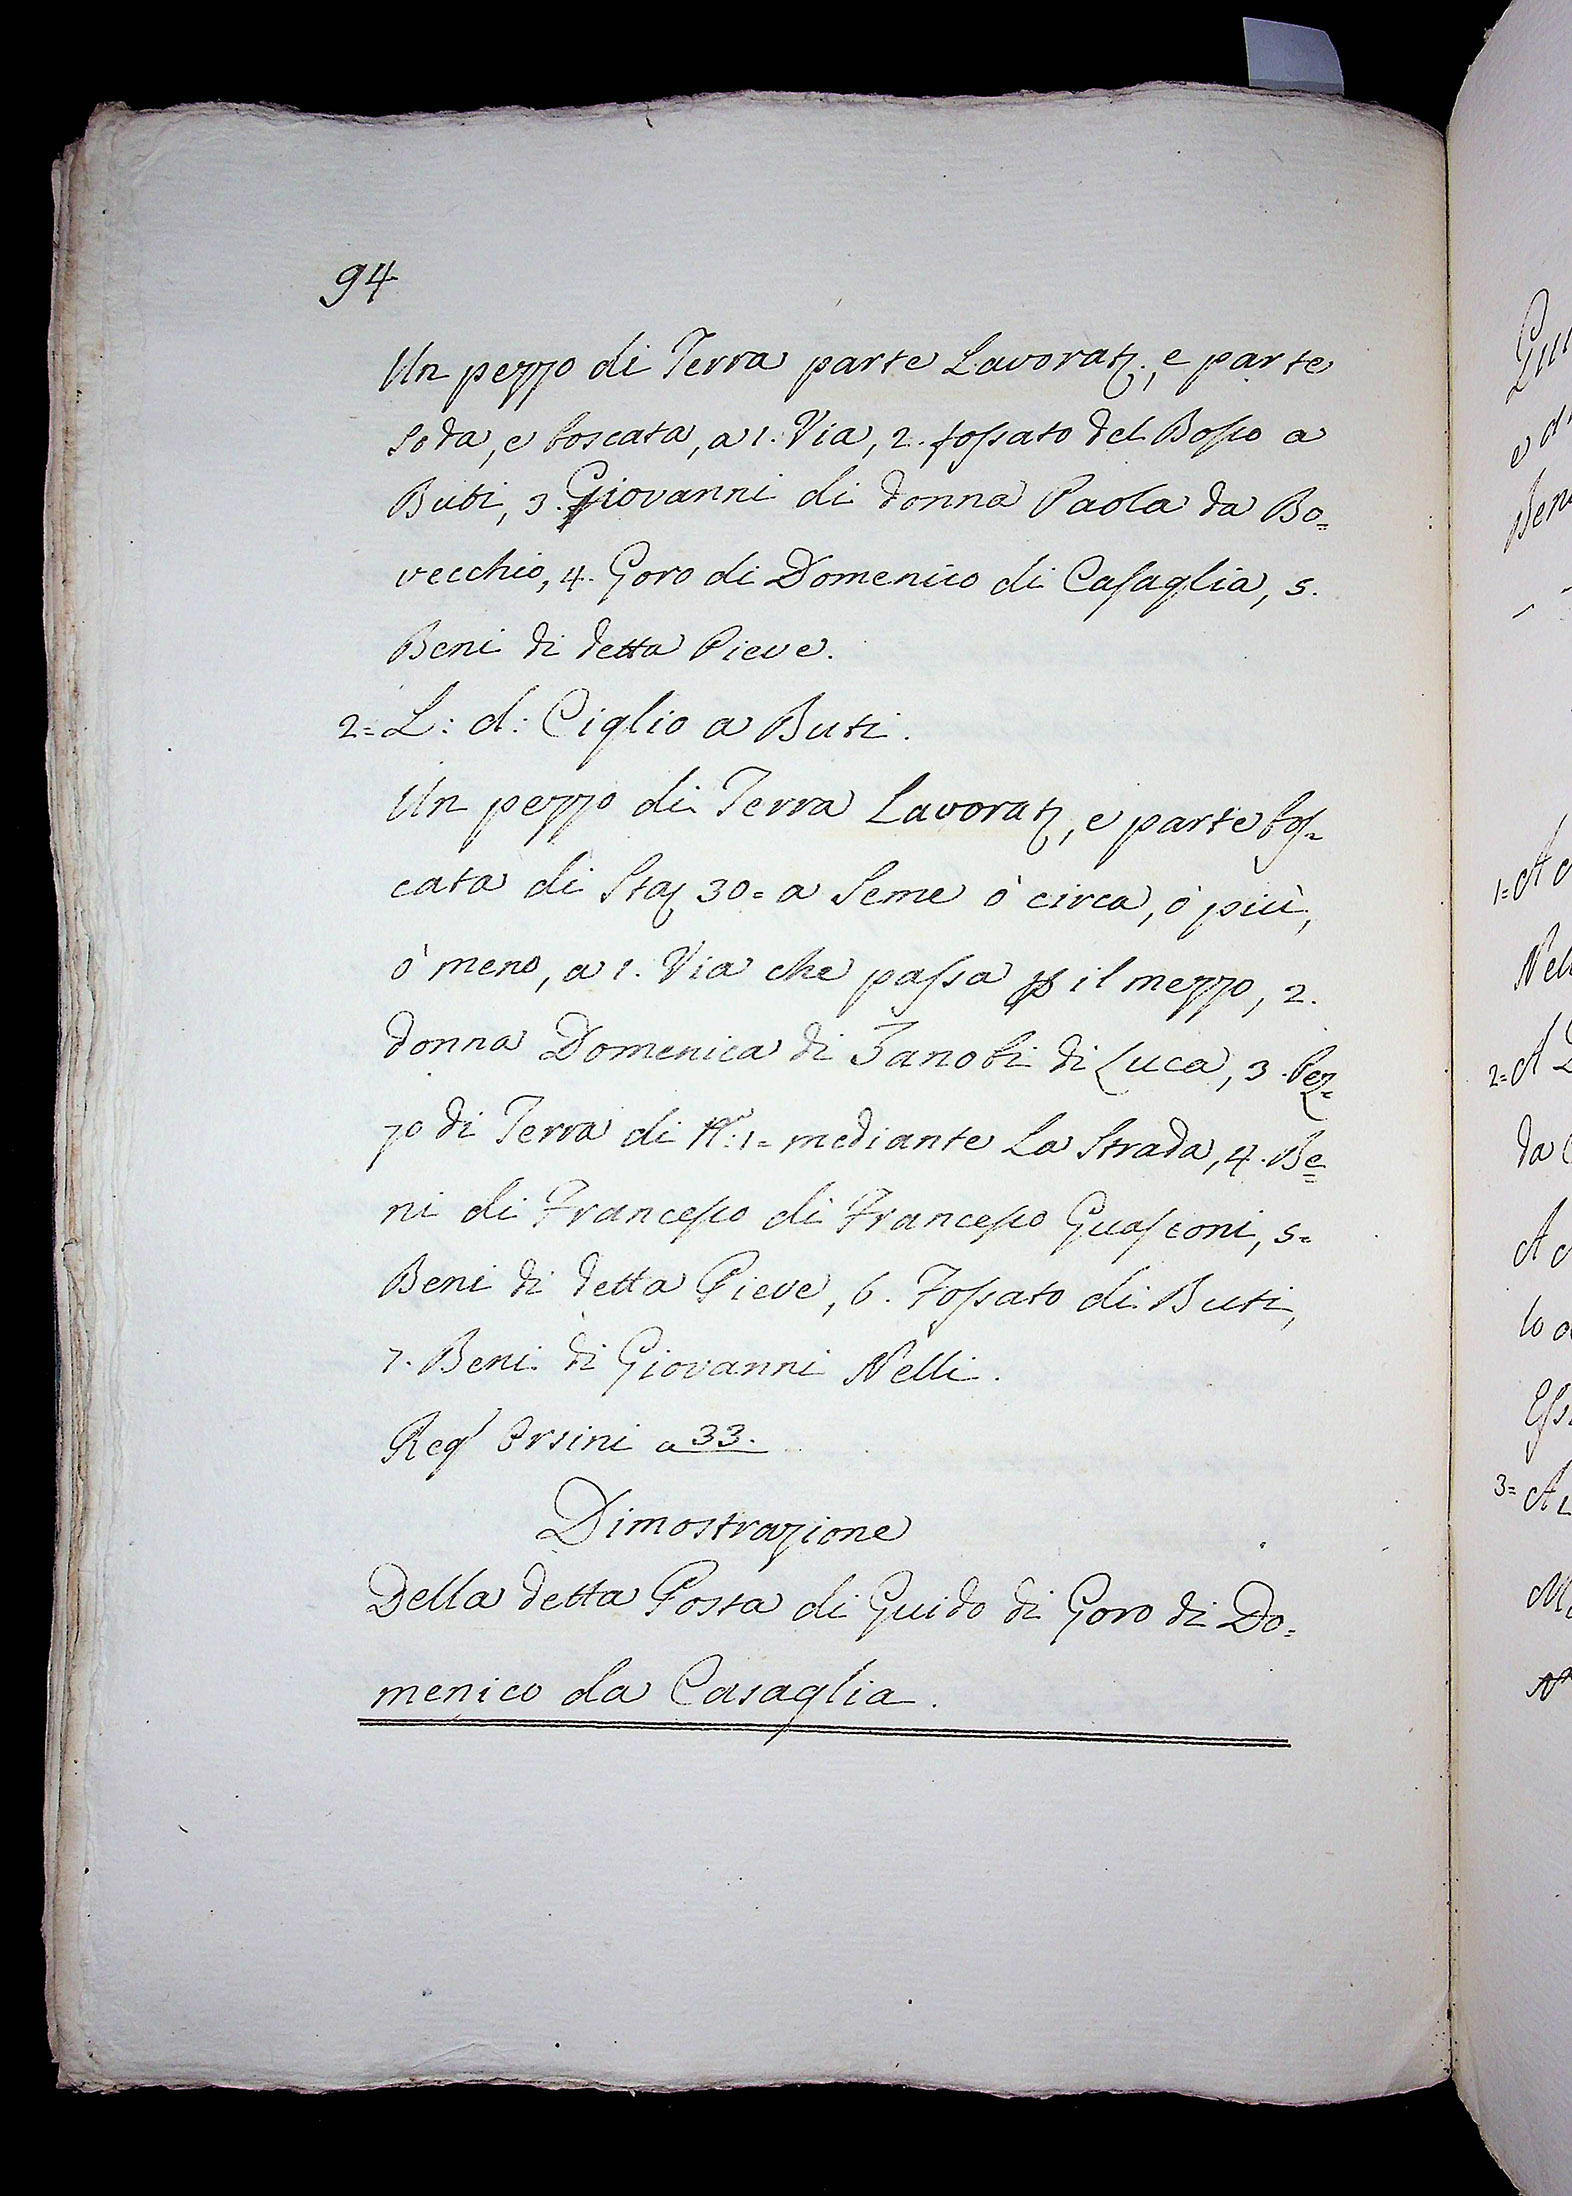 94
Un pezzo di Terra parte Lavorat:, e parte
soda, e boscata, a 1. Via, 2. fossato del Bosco a
Buti, 3. Giovanni di donna Paola da Bo=
vecchio, 4. Goro di Domenico di Casaglia, 5.
Beni di detta Pieve.
2= L: d: Ciglio a Buti.
Un pezzo di Terra Lavorat:, e parte bos=
cata di Sta: 30= a Seme ò circa, ò più,
ò meno, a 1. Via che passa p il mezzo, 2.
donna Domenica di Zanobi di Luca, 3. Pez=
zo di Terra di N.º 1= mediante La Strada, 4. Be=
ni di Francesco di Francesco Guasconi, 5=
Beni di detta Pieve, 6. Fossato di Buti,
7. Beni di Giovanni Nelli.
Reg.º Orsini a 33.
Dimostrazione
Della detta Posta di Guido di Goro di Do=
menico da Casaglia.
1= A
Nel
2= A
da
A
lo
3= A